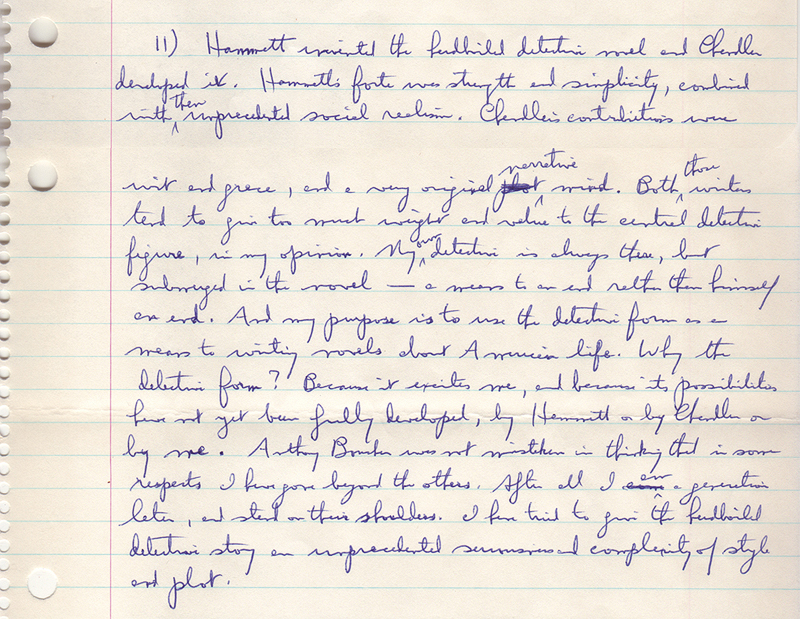 11) Hammett invented the hardboiled detective novel and Chandler
developed it. Hammett's forte was strength and simplicity, combined
with then unprecedented social realism. Chandler's contributions were
wit and grace, and a very original narrative mind. Both those writers
tend to give too much weight and value to the central detective
figure, in my opinion. My own detective is always there, but
submerged in the novel — a means to an end rather than himself
an end. And my purpose is to use the detective form as a
means to writing novels about American life. Why the
detective form? Because it excites me, and because its possibilities
have not yet been fully developed, by Hammett or by Chandler or
by me. Anthony Boucher was not mistaken in thinking that in some
respects I have gone beyond the others. After all I am a generation
later, and stand on their shoulders. I have tried to give the hardboiled
detective story an unprecedented seriousness and complexity of style
and plot.